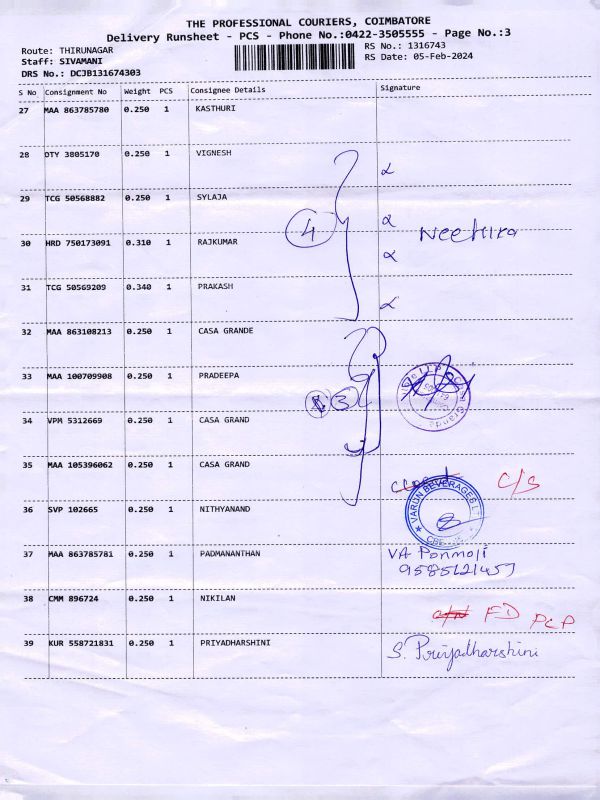 THE PROFESSIONAL COURIERS, COIMBATORE
Delivery Runsheet - PCS - Phone No.:0422-3505555 - Page No.:3
Route: THIRUNAGAR
RS No.: 1316743
Staff: SIVAMANI
RS Date: 05-Feb-2024
DRS No.: DCJB131674303
S No Consignment No Weight PCS Consignee Details Signature
27 MAA 863785780 0.250 1 KASTHURI
28 OTY 3805170 0.250 1 VIGNESH
29 TCG 50568882 0.250 1 SYLAJA
4 Neehira
30 HRD 750173091 0.310 1 RAJKUMAR
31 TCG 50569209 0.340 1 PRAKASH
32 MAA 863108213 0.250 1 CASA GRANDE
33 MAA 100709908 0.250 1 PRADEEPA
3
34 VPM 5312669 0.250 1 CASA GRAND
35 MAA 105396062 0.250 1 CASA GRAND
C/S
36 SVP 102665 0.250 1 NITHYANAND
VARUN BEVERAGES
37 MAA 863785781 0.250 1 PADMANANTHAN
VA Ponmoji
38 CMM 896724 0.250 1 NIKILAN
FD PCP
39 KUR 558721831 0.250 1 PRIYADHARSHINI
S. Priyadharshini